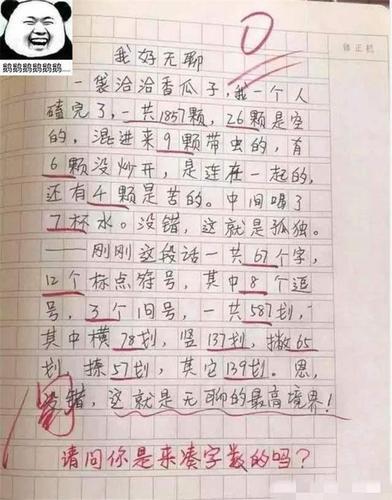 我好无聊
0
修正机
鹅鹅鹅鹅鹅鹅
一袋洽洽香瓜子，我一个人
磕完了，一共1857颗，26颗是空
的，混进来9颗带虫的，有
6颗没炒开，是连在一起的，
还有4颗是苦的。中间喝了
7杯水。没错，这就是孤独。
——刚刚这段话一共67个字，
12个标点符号，其中8个逗
号，3个句号，一共587划，
其中横78划，竖137划，撇65
划，捺57划，其它139划。恩，
没错，这就是无聊的最高境界！
阅
请问你是来凑字数的吗？